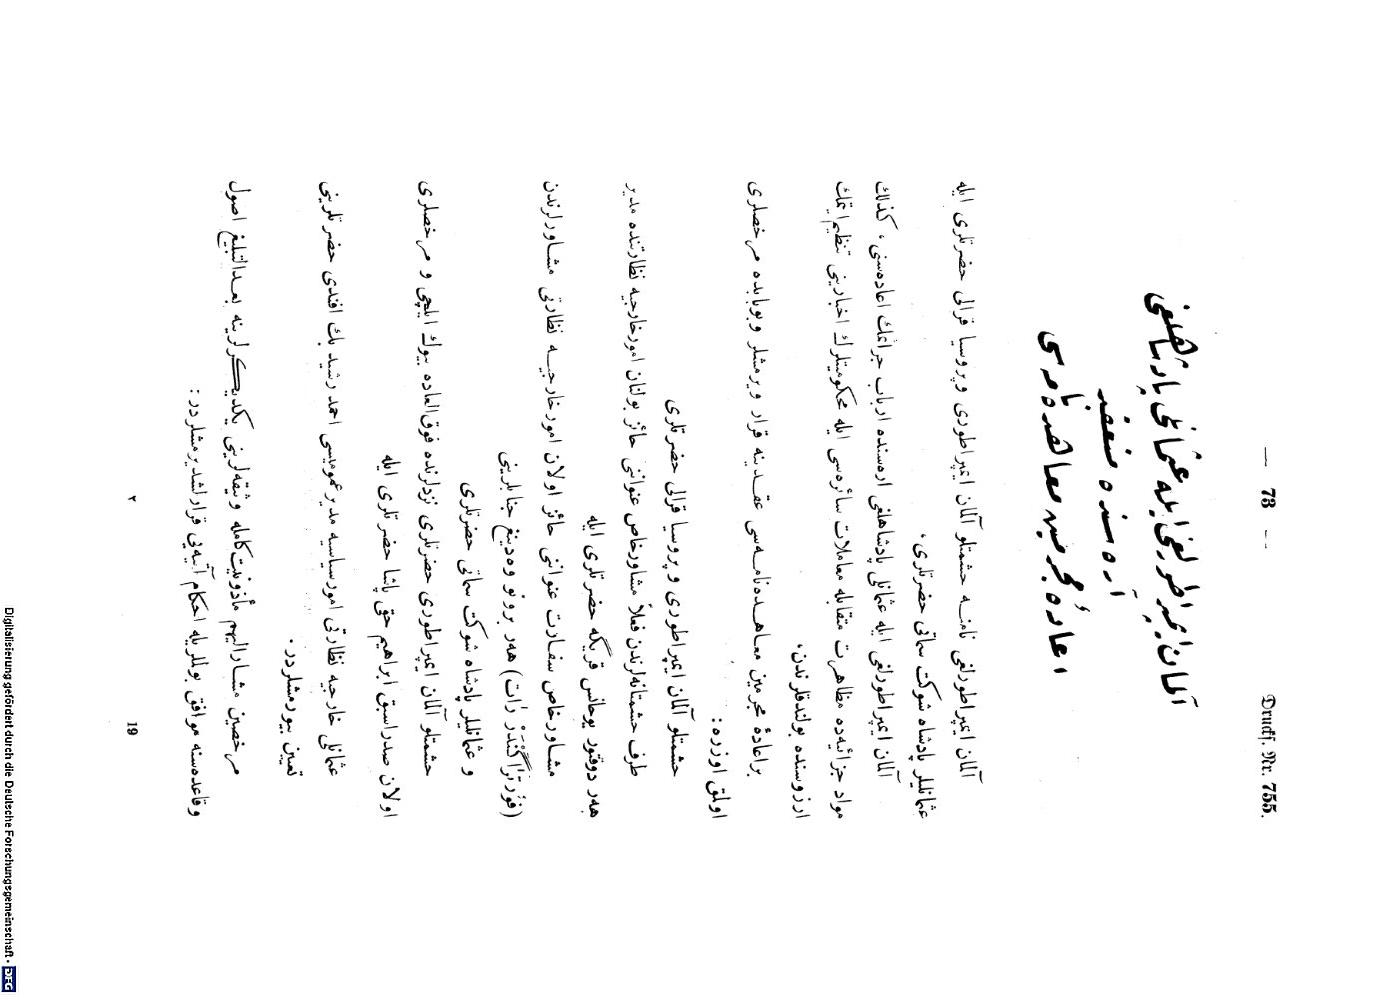 — 73 —
Drucks. Nr. 755.
آلمان ایمپراطورلغی ایله عثمانلی پادشاهلغی
آره سنده منعقد
اعادهٔ مجرمین معاهده نامه سی
آلمان ایمپراطورلغی نامنه حشمتلو آلمان ایمپراطوری و پروسیا قرالی حضرتلری ایله
عثمانلیلر پادشاه شوکت سماتی حضرتلری،
آلمان ایمپراطورلغی ایله عثمانلی پادشاهلغی اره‌سنده ارباب جرائمك اعاده‌سنی، كذلك
مواد جزائیه‌ده مظاهرت متقابله معاملات سائره‌سی ایله محكومیتلرك اخبارینی تنظیم ایتمك
ارزوسنده بولندقلرندن،
براعادهٔ مجرمین معاهده‌نامه‌سی عقدینه قرار ویرمشلر و بوبابده مرخصلری
اولمق اوزره:
حشمتلو آلمان ایمپراطوری و پروسیا قرالی حضرتلری
طرف حشمتانه‌لرندن فعلاً مشاور خاص عنوانی حائز بولنان امور خارجیه نظارتنده مدیر
هەر دوقتور یوحانس قریگه حضرتلری ایله
مشاور خاص سفارت عنوانی حائز اولان امور خارجیه نظارتی مشاورلرندن
هەر برونو وه‌دینغ جنابلرینی
و عثمانلیلر پادشاه شوکت سماتی حضرتلری
حشمتلو آلمان ایمپراطوری حضرتلری نزدلرنده فوق‌العاده بیوك ایلچی و مرخصلری
اولان صدر اسبق ابراهیم حقی پاشا حضرتلری ایله
عثمانلی خارجیه نظارتی امور سیاسیه مدیر عمومیسی احمد رشید بك افندی حضرتلرینی
تعیین بیورمشلردر.
مرخصین مشار الیهم مأذونیت كامله وثیقه‌لرینی یكدیكرلرینه بعدالتبلیغ اصول
وقاعده‌سنه موافق بوللریله احكام آتیه‌یی قرارلشدیرمشلردر:
٢
19
Digitalisierung gefördert durch die Deutsche Forschungsgemeinschaft - DFG